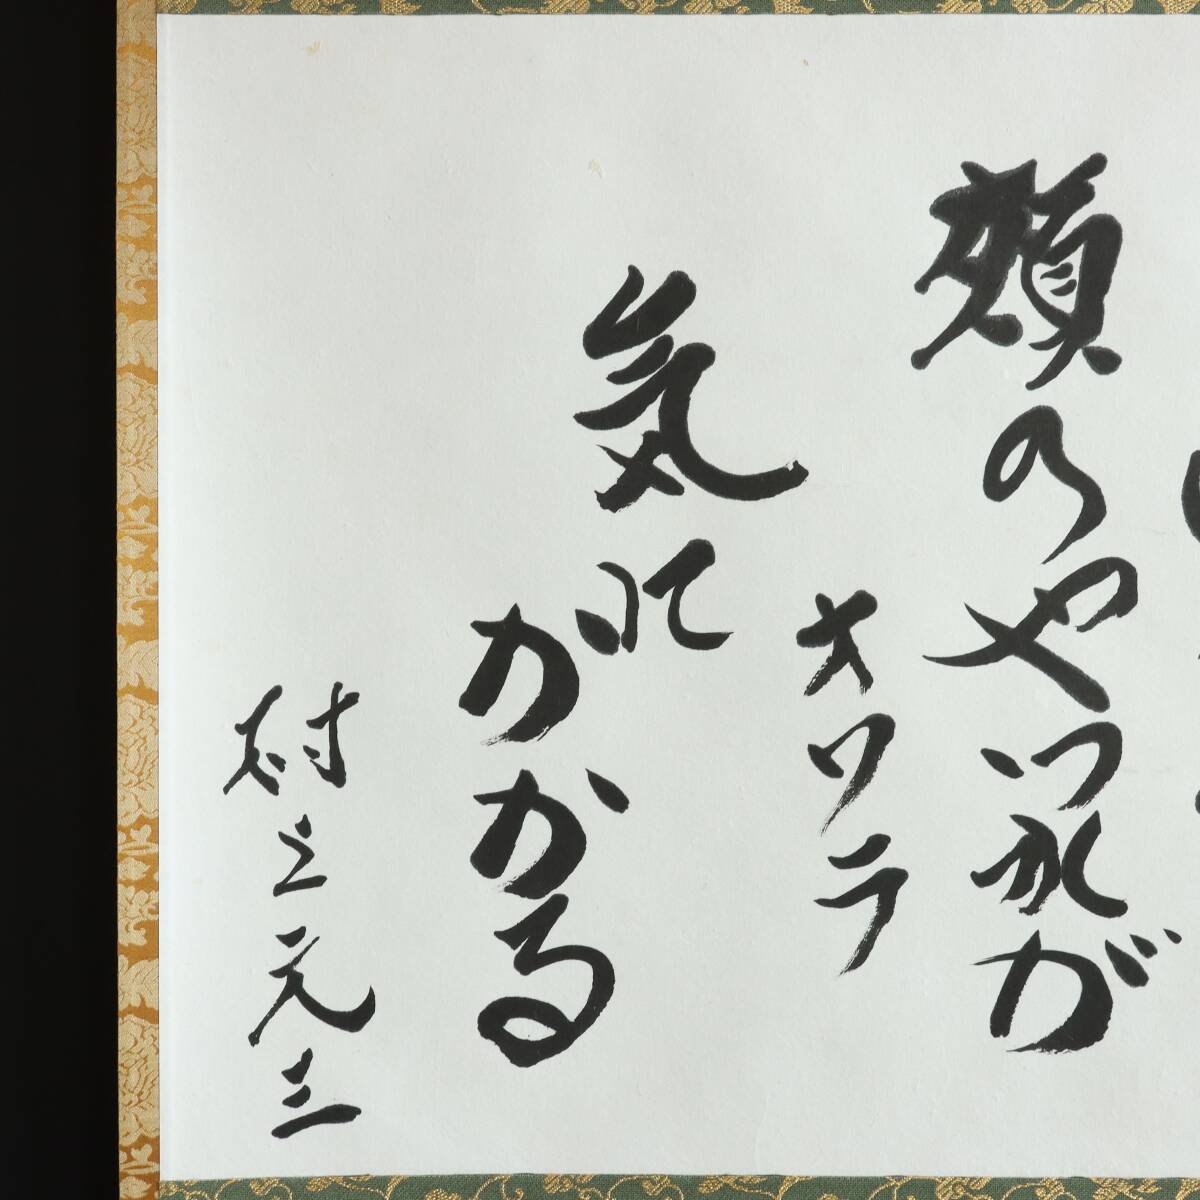 頬のやつれが
オワラ
気に
かかる
村上元三